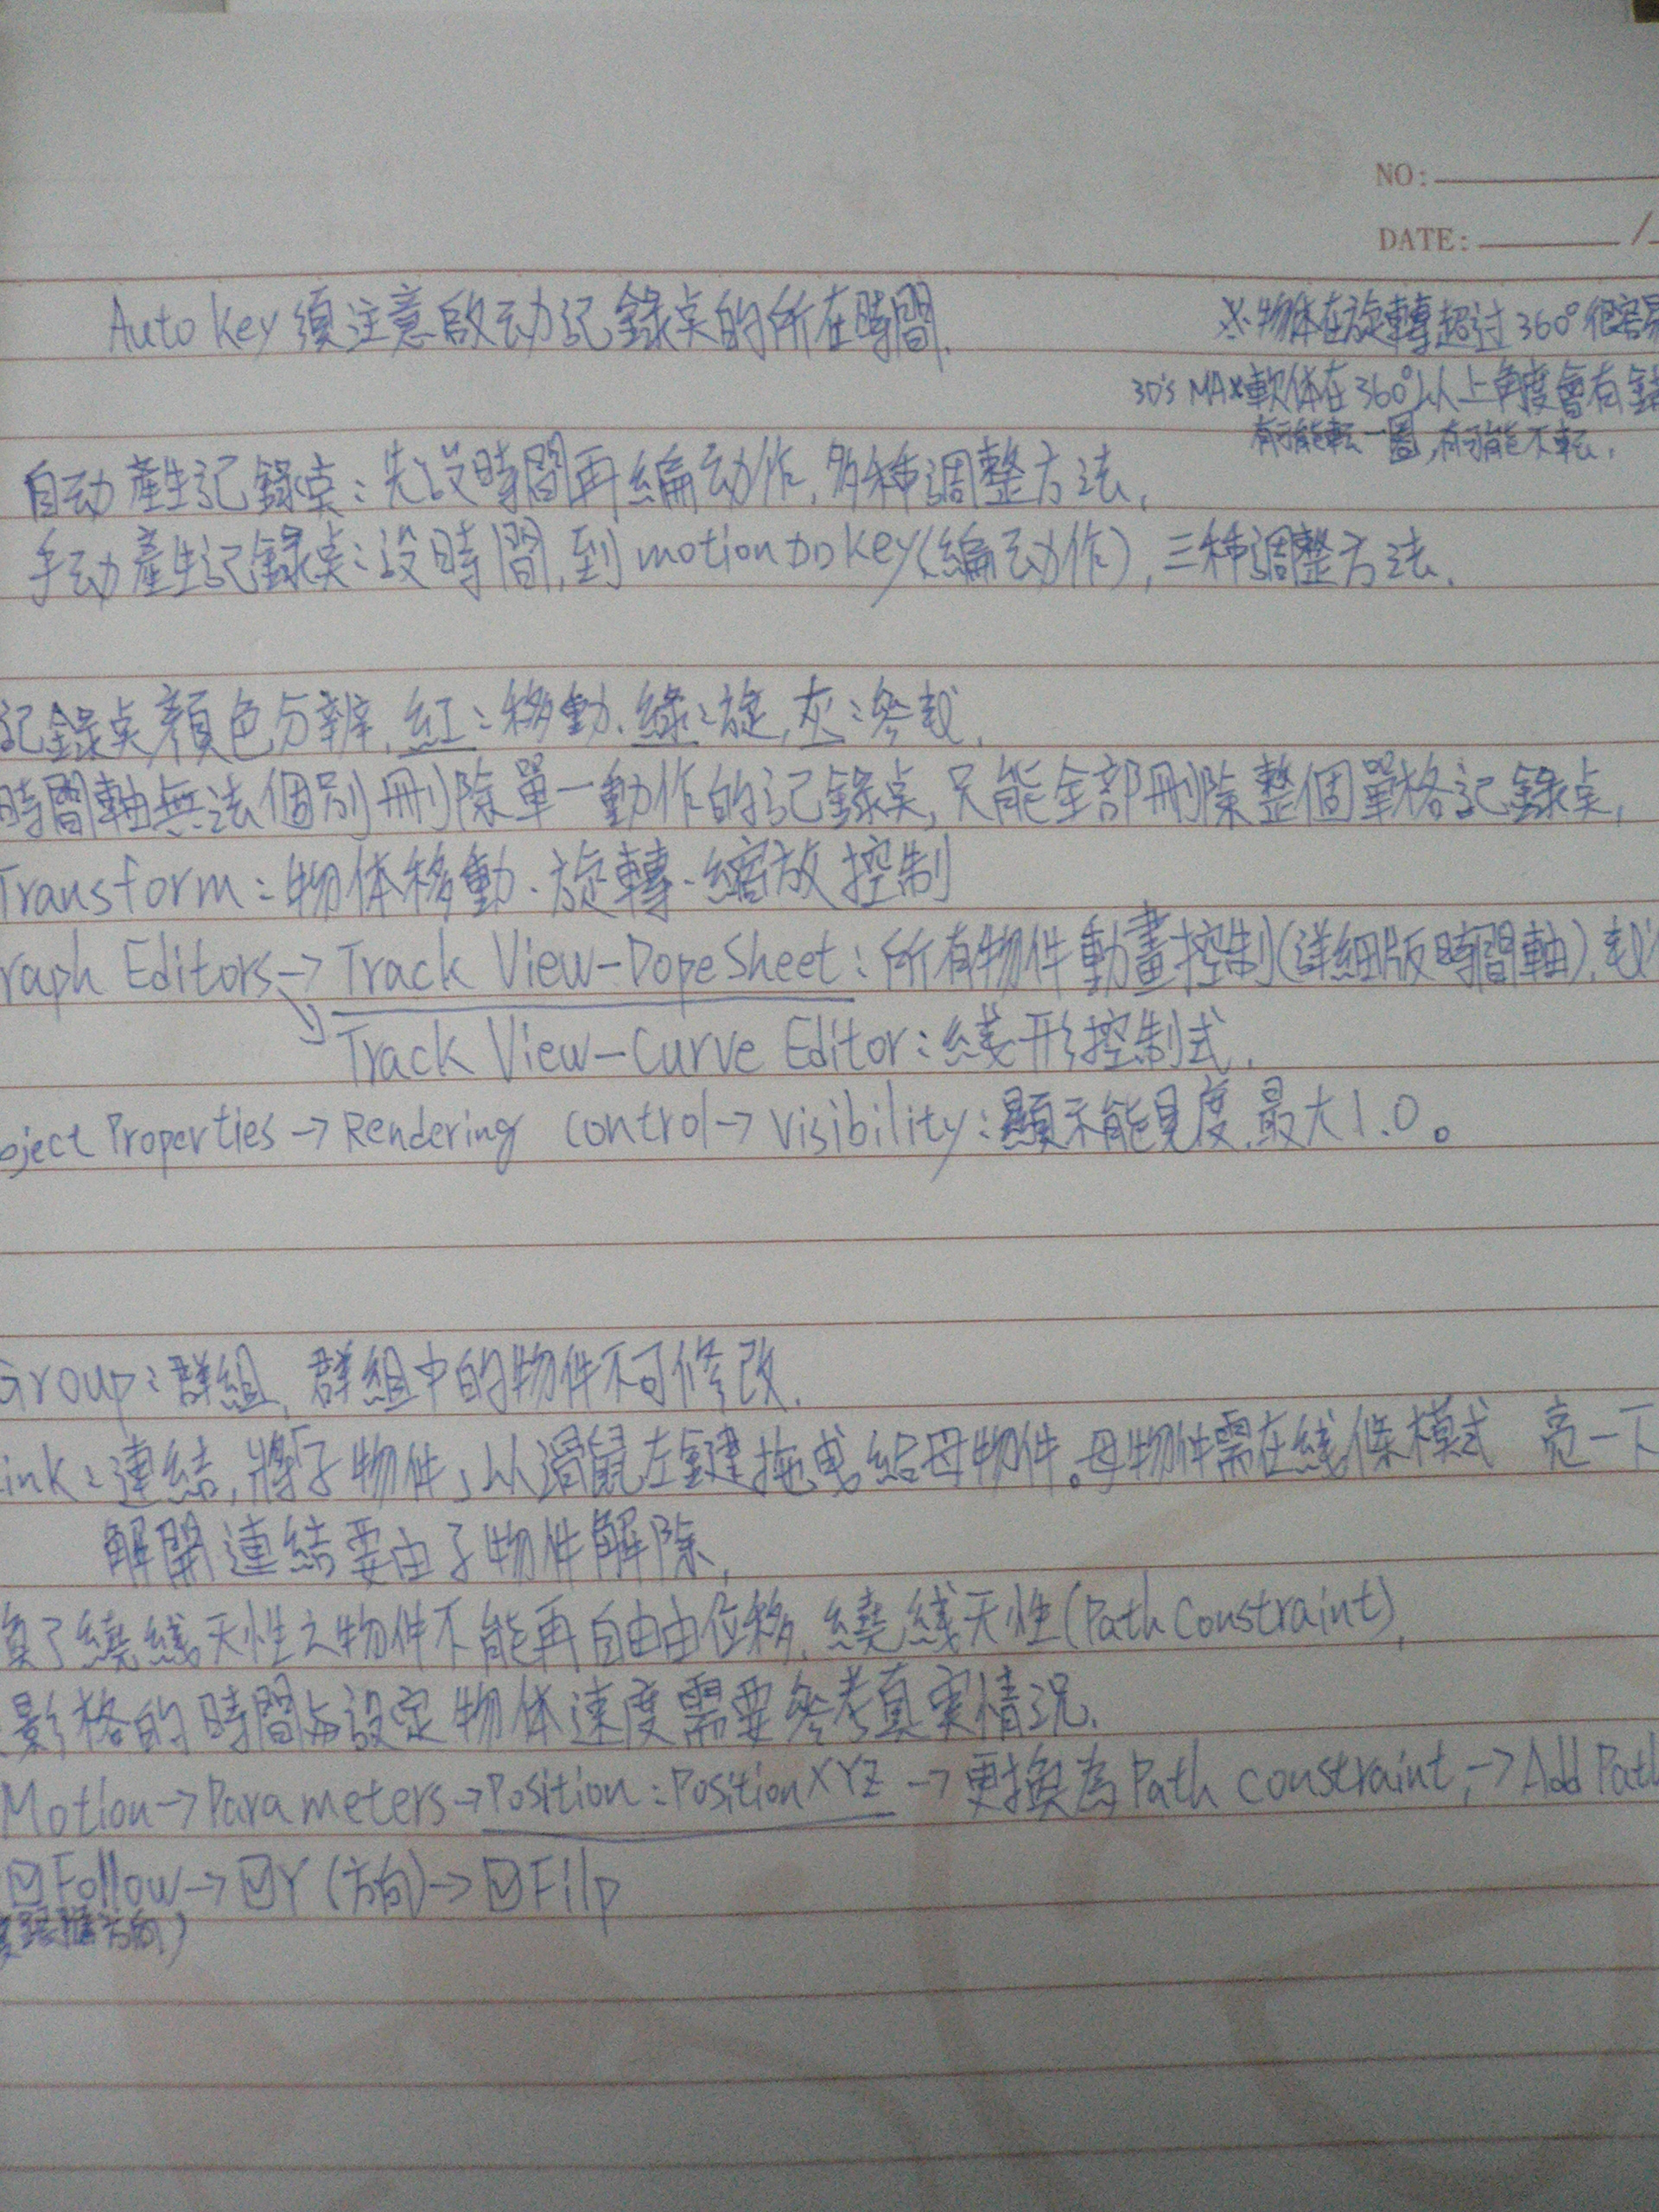 NO:
DATE: /
Auto Key 須注意啟动记錄桌的所在時間.
※物体在旋轉超过360°很容易
3D's MAX軟体在360°以上角度會有錯
有可能転一圈,有可能不転.
自动產生记錄桌:先设時間再編动作,多種調整方法.
手动產生记錄桌:设時間,到motion加key(編动作),三種調整方法.
记錄桌顏色分辨,紅:移動.綠:旋,灰:參数.
時間軸無法個別刪除單一動作的记錄桌,只能全部刪除整個單格记錄桌,
Transform:物体移動.旋轉.縮放控制
raph Editors→Track View-Dope Sheet:所有物件動畫控制(詳細版時間軸).
Track View-Curve Editor:綫形控制式.
bject Properties→Rendering control→Visibility:顯示能見度.最大1.0。
Group:群組,群組中的物件不可修改.
ink:連結,將子物件,以滑鼠左鍵拖曳給母物件。母物件需在綫條模式 亮一下
解開連結要由子物件解除,
了繞綫天性之物件不能再自由由位移.繞綫天性(Path Constraint),
影格的時間與設定物体速度需要參考真实情況.
Motion→Parameters→Position:Position XYZ→更換為Path constraint,→Add Path
☑Follow→☑Y(方向)→☑Filp
跟隨方向)